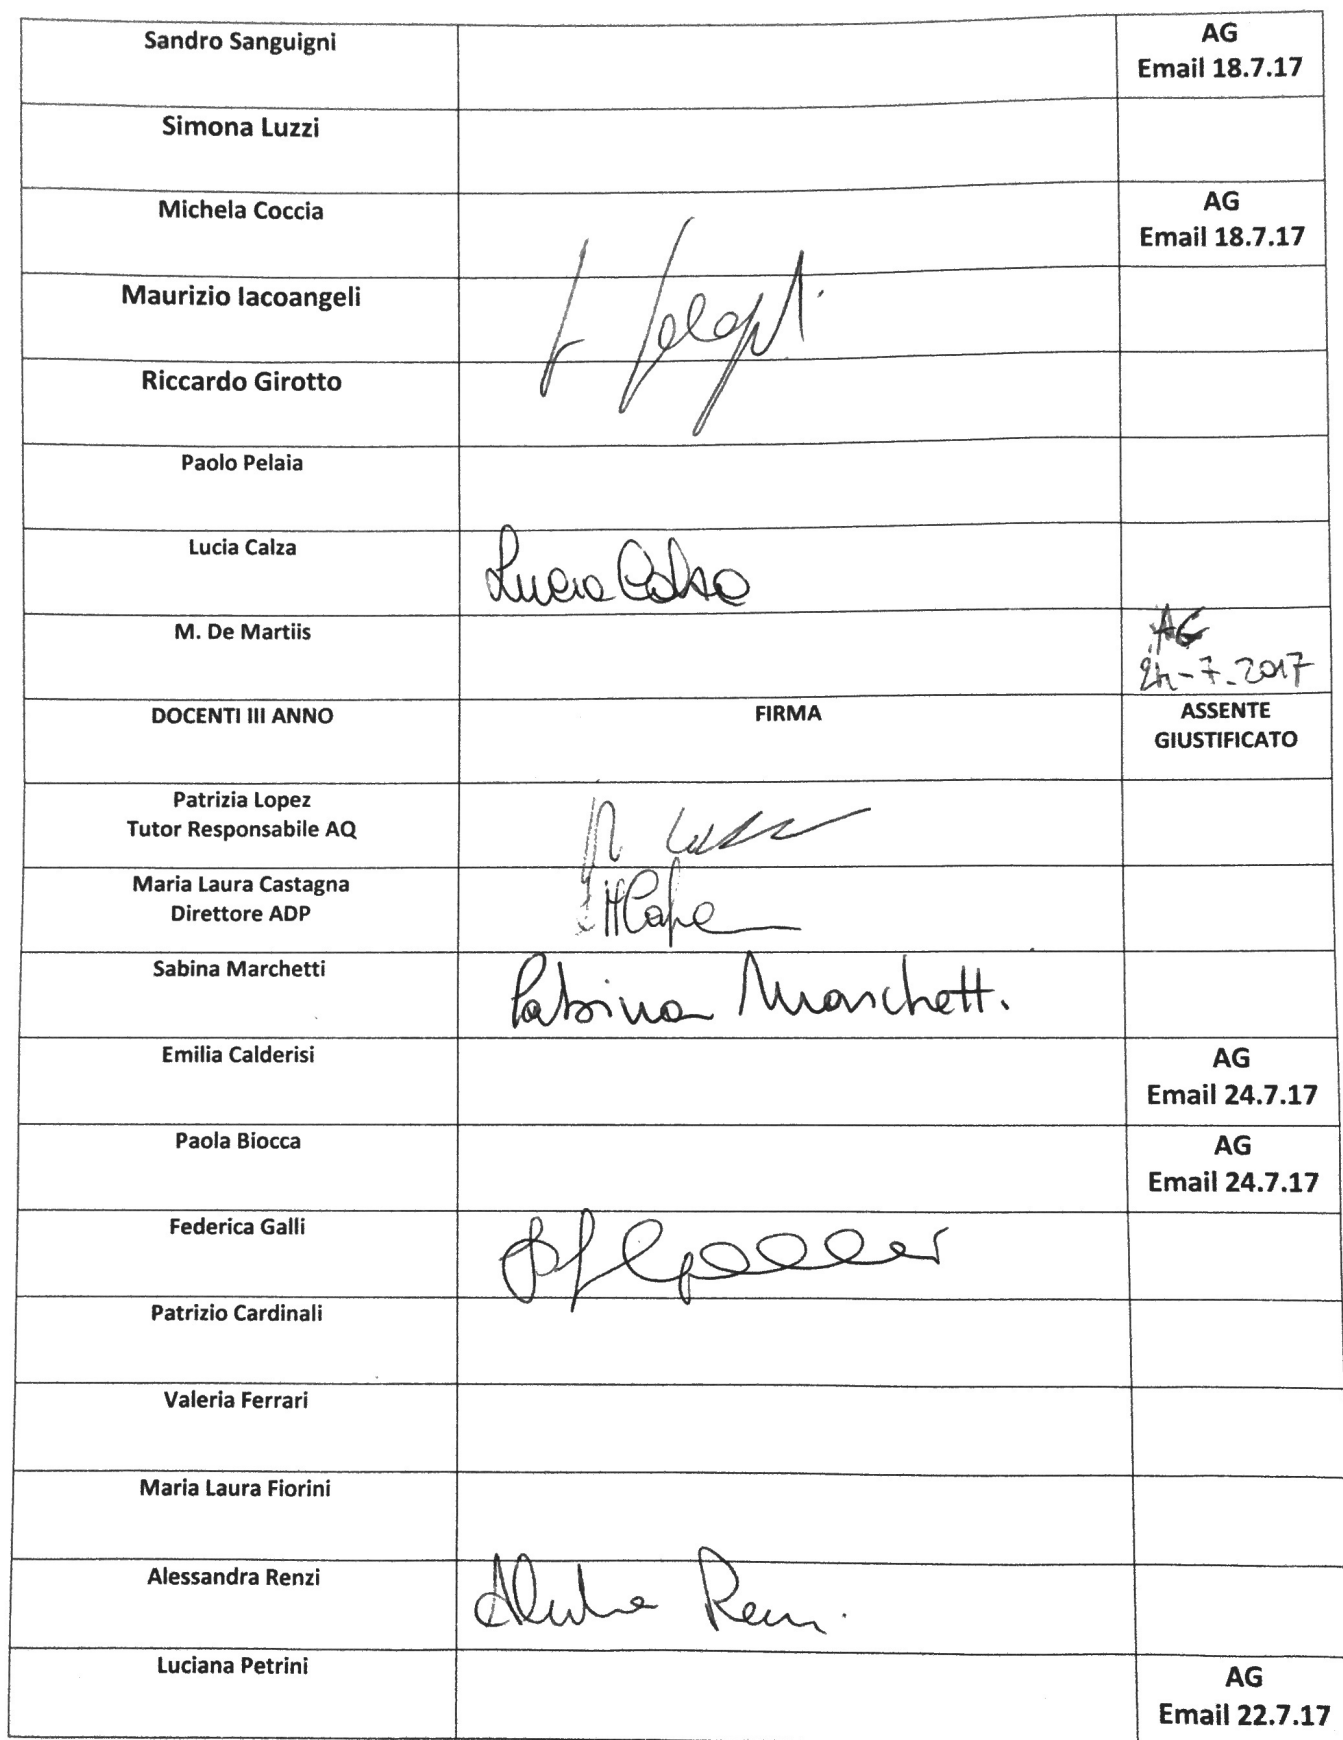 Sandro Sanguigni
AG
Email 18.7.17
Simona Luzzi
Michela Coccia
AG
Email 18.7.17
Maurizio Iacoangeli
Riccardo Girotto
Paolo Pelaia
Lucia Calza
Lucia Calza
M. De Martiis
AG
24-7-2017
DOCENTI III ANNO
FIRMA
ASSENTE
GIUSTIFICATO
Patrizia Lopez
Tutor Responsabile AQ
Maria Laura Castagna
Direttore ADP
Sabina Marchetti
Sabina Marchetti
Emilia Calderisi
AG
Email 24.7.17
Paola Biocca
AG
Email 24.7.17
Federica Galli
Patrizio Cardinali
Valeria Ferrari
Maria Laura Fiorini
Alessandra Renzi
Luciana Petrini
AG
Email 22.7.17